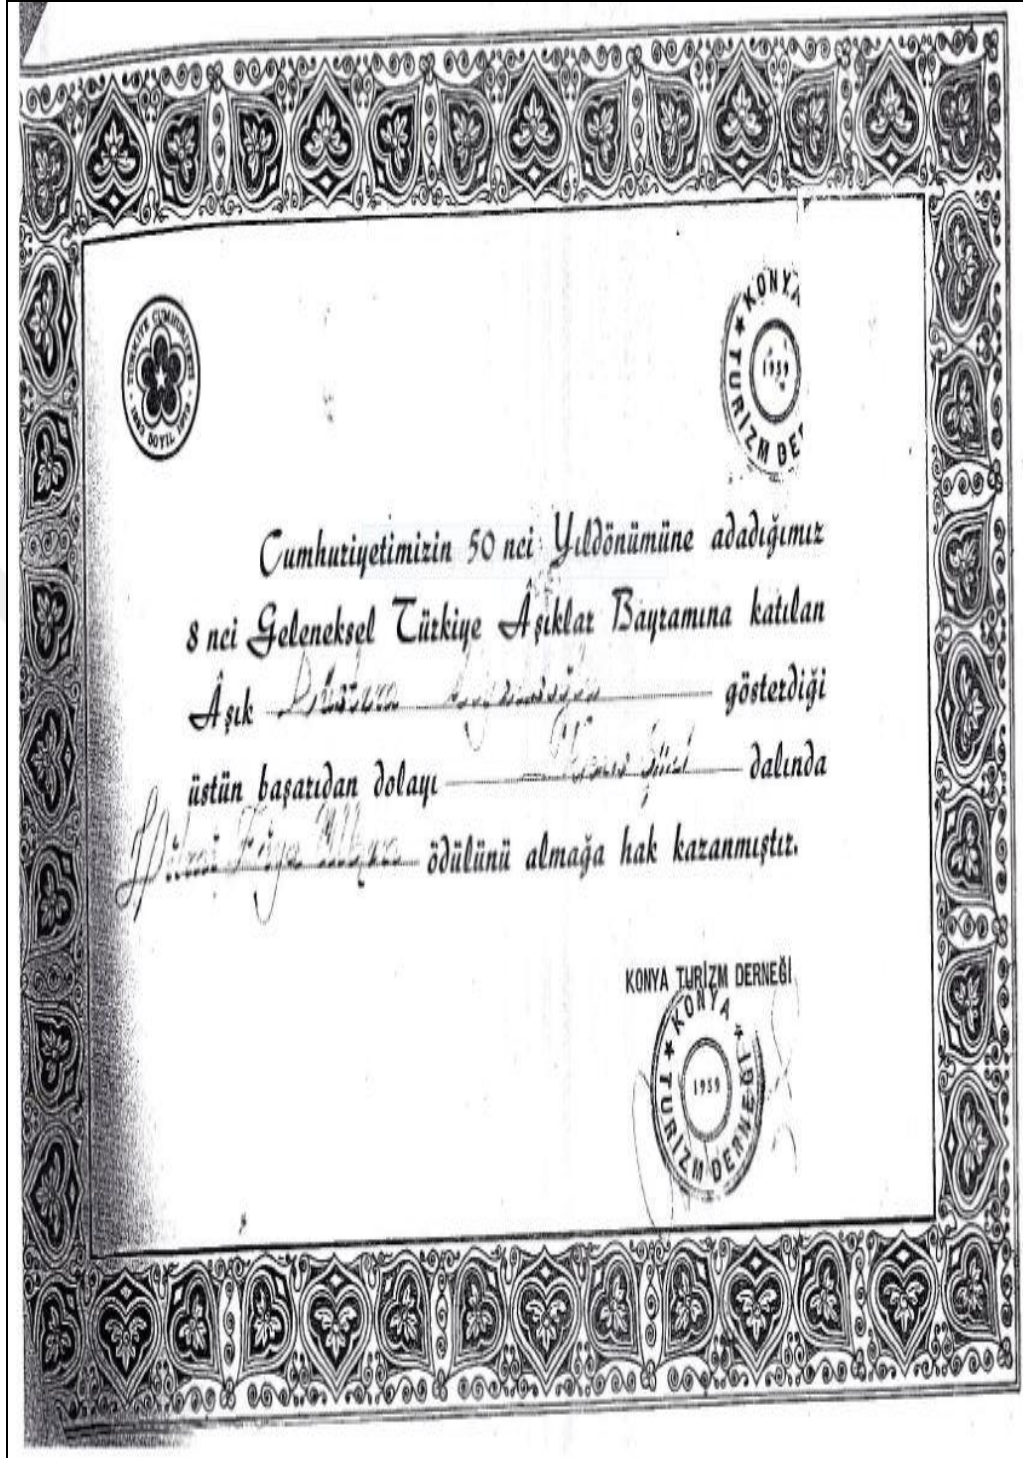 TÜRKİYE CUMHURİYETİ
1923 50 YIL 1973
KONYA
TURİZM DE
1959
Cumhuriyetimizin 50 nci Yıldönümüne adadığımız
8 nci Geleneksel Türkiye Âşıklar Bayramına katılan
Âşık gösterdiği
üstün başarıdan dolayı dalında
ödülünü almağa hak kazanmıştır.
KONYA TURİZM DERNEĞİ
KONYA
TURİZM DERNEĞİ
1959